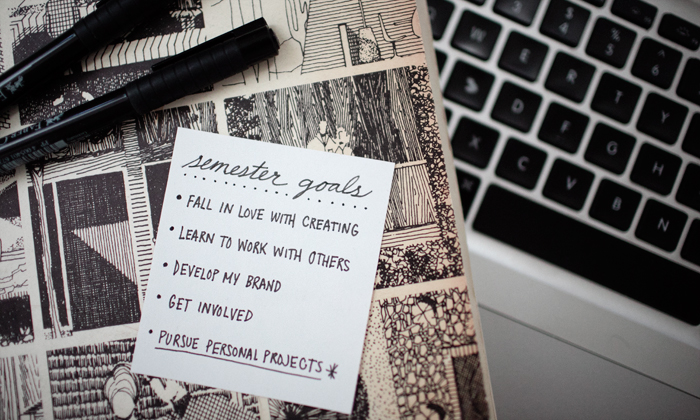 semester goals
• FALL IN LOVE WITH CREATING
• LEARN TO WORK WITH OTHERS
• DEVELOP MY BRAND
• GET INVOLVED
• PURSUE PERSONAL PROJECTS *
$
4
%
5
^
6
W
E
R
T
Y
S
D
F
G
H
X
C
V
B
N